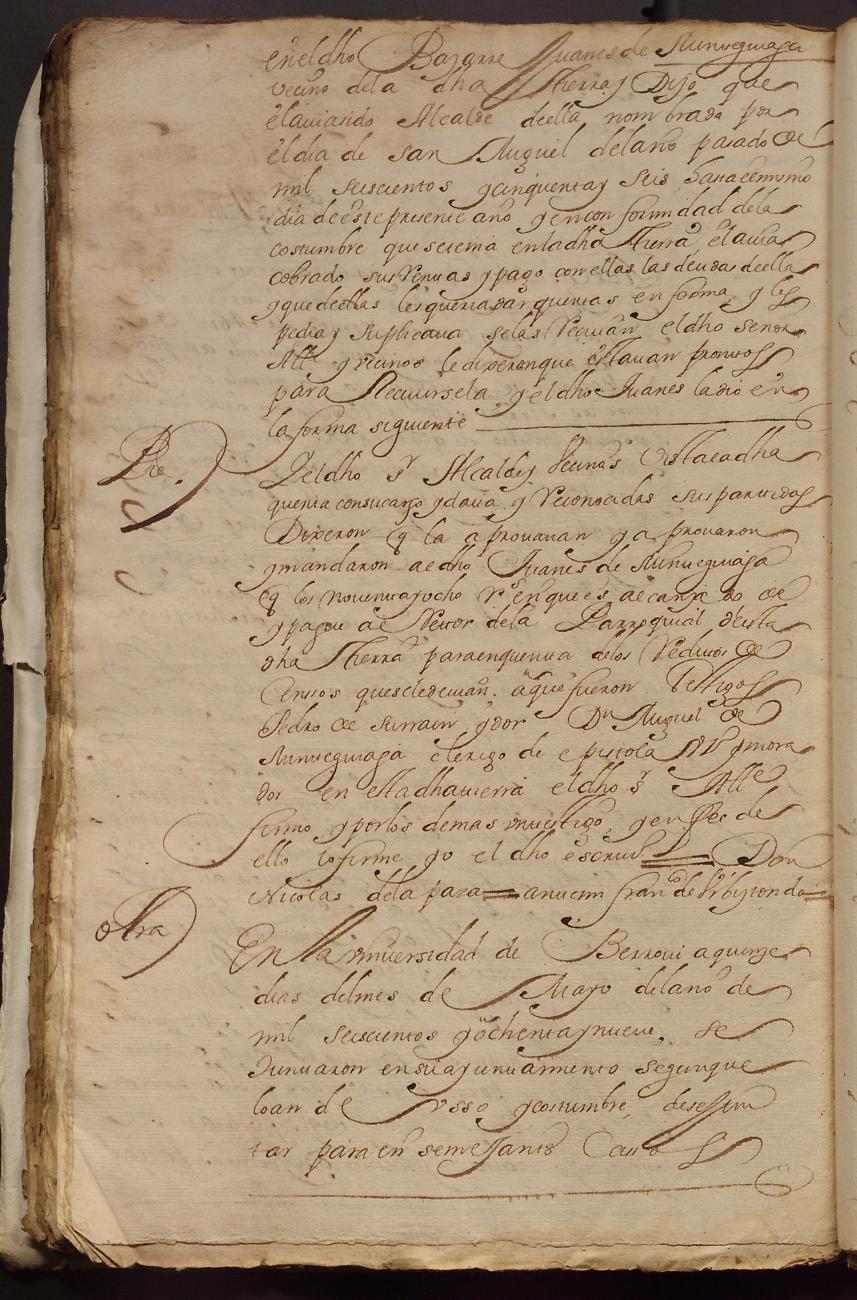 en el dho Bazarre Juanes de Munueguiaga
vecino de la dha tierra y Dijo que
el auia sido Alcalde de ella nombrado por
el dia de san Miguel del año pasado de
mil seiscientos y cinquenta y seis hasta el mismo
dia de este presente año y en conformidad de la
costumbre que se tenia en la dha tierra, el auia
cobrado sus Rentas y pago con ellas las deudas de ella
y que de ellas les queria dar quentas en forma, y les
pedia y suplicaua se las Reciuan el dho señor
Alle y vecinos le dixeron que estauan promtos
para Reciuirsela, y el dho Juanes la dio en
la forma siguiente
Pie.
Y el dho sr Alcalde y vecinos Vista la dha
quenta con su cargo y data y Reconocidas sus partidas
Dixeron q la aprouauan y aprouaron
y mandaron a el dho Juanes de Munueguiaga
q los nouenta y ocho Rs en que es alcanzado de
y pague a el Retor de la Parroquial de esta
dha tierra para en quenta de los Reditos de
Censos que se le deuian. a que fueron testigos
Pedro de y por Dn Miguel de
Munueguiaga clerigo de epistola Vo y mora
dor en esta dha tierra el dho sr Alle
firmo y por los demas vn testigo, y en fee de
ello lo firme yo el dho escriuo. Don
Nicolas de la para ante mi franco de
otra
En la vniuersidad de Berroui a quinze
dias del mes de Mayo del año de
mil seiscientos y ochenta y nueue, se
Juntaron en su ayuntamiento segun que
lo an de vsso y costumbre, de se Jun
tar para en semejantes Casos